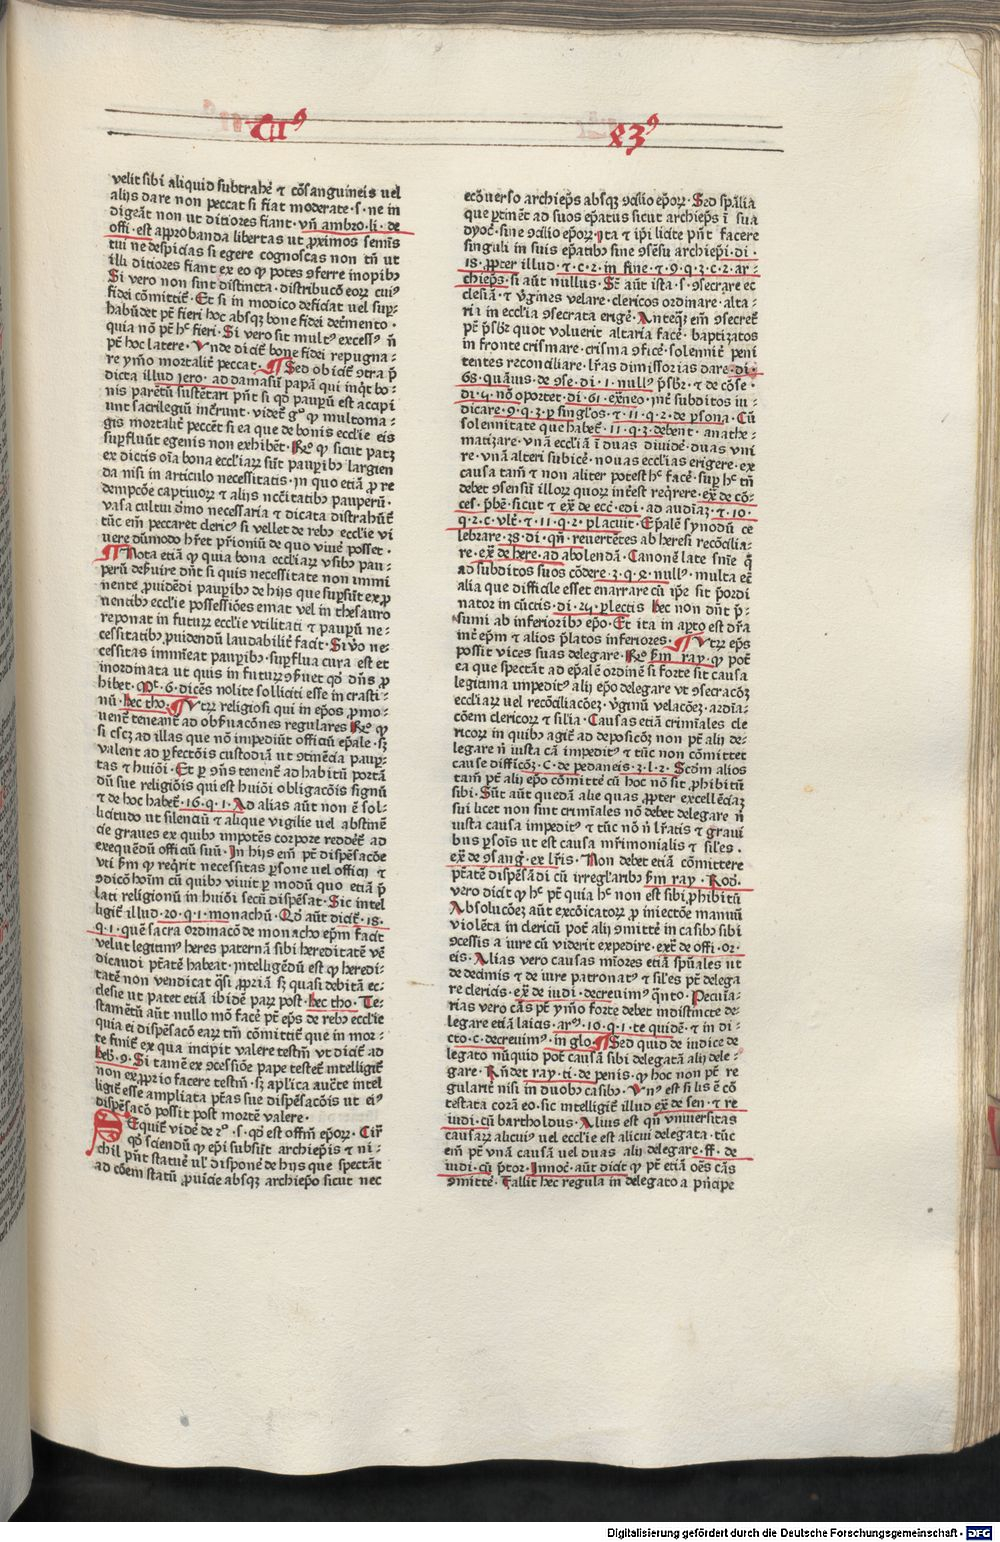 TII⁹ 83⁹
velit sibi aliquid subtrahe᷑ ⁊ cōsanguineis uel
alijs dare non peccat si fiat moderate · s · ne in
digeāt non ut ditiores fiant · vn̄ ambro · li · de
offi · est approbanda libertas ut proximos semīs
tui ne despicias si egere cognoscas non tn̄ ut
illi ditiores fiant ex eo qꝫ potes ꝯferre inopibꝫ
Si vero non sint distincta · distribucō eoꝝ cuiꝰ
fidei cōmittit᷑ · Et si in modico deficiat uel supr-
habūdet pt̄ fieri hoc absqꝫ bone fidei det᷑mento ·
quia nō pt̄ hͨ fieri · Si vero sit multꝰ excessꝰ n̄
pt̄ hoc latere · Vnde dicit᷑ bone fidei repugna-
re ymo mortalit᷑ peccat · ¶ Sed obicit᷑ ꝯtra p̄
dicta illud jero · ad damasū papā qui inqͥt bo-
nis parētū sustētari pn̄t si qͦ paupeꝝ est accipi
unt sacrilegiū incͥrunt · videt᷑ gͦ qꝫ multoma-
gis mortalit᷑ peccēt si ea que de bonis ecclīe eis
supfluūt egenis non exhibēt · Rͦ qꝫ sicut patꝫ
ex dictis oīa bona eccliaꝝ sūt paupibꝫ largien
da nisi in articulo necessitatis · in quo etiā p re
dempcōe captiuoꝝ ⁊ alijs nccͥtatibꝫ pauperū ·
vasa cultui dīno necessaria ⁊ dicata distrahūt᷑
tūc em̄ peccaret clericꝰ si vellet de rebꝫ ecclie vi
uere dūmodo hr̄et p̄rioniū de quo viuē posset ·
¶ Nota etiā qꝫ quia bona eccliaꝝ vsibꝫ pau-
perū defuire dn̄t si quis necessitate non immi
nente prouidēdi paupibꝫ de hijs que supsūt ex p
uentibꝫ ecclie possessiōes emat vel in thesauro
reponat in futuꝝ ecclie vtilitati ⁊ paupeꝝ ne-
cessitatibꝫ prouidendū laudabilit᷑ facit · Si vͦo ne-
cessitas immīeat paupibꝫ supflua cura est et
inordinata ut quis in futuꝝ ꝯseruet qͦ dn̄s p
hibet · Mͭ · 6 · dicēs nolite solliciti esse in crasti-
nū · hec tho · ¶ Vtꝝ religiosi qui in epos pmo-
uent᷑ teneant᷑ ad obseruacōnes regulares Rͦ qꝫ
si cͨqꝫ ad illas que nō impediūt officiū epale · sꝫ
valent ad pfectōis custodiā ut ꝯtinēcia paupr-
tas ⁊ huiōi · Et p ꝯn̄s tenent᷑ ad habitū portā
dū sue religiōis qui est huiōi obligacōis signū
⁊ de hoc habet᷑ · 16 · q · 1 · Ad alias aūt non ē sol-
licitudo ut silenciū ⁊ alique vigilie uel abstinē
cie graues ex quibꝫ impotēs corpore reddet᷑ ad
exequēdū officiū suū · In hijs em̄ pt̄ dispēsacōe
vti s̄m qꝫ reqͥrit necessitas psone uel officij ⁊
ꝯdicō hoīm cū quibꝫ viuit p modū quo etiā p̄
lati religionū in huiōi secū dispēsat · Sic intel
ligit᷑ illud · 20 · q · 1 · monachū · Qͦ aūt dicit᷑ · 18 ·
q · 1 · quē sacra ordinacō de monacho ep̄m facit
velut legitimꝰ heres paternā sibi hereditatē vē
dicandi pt̄atē habeat · jntelligēdū est qꝫ heredi-
tatē non vendicat qͣsi p̄priā sꝫ quasi debitā ec-
clesie ut patet etiā ibidē paꝝ post · hec tho · Te-
stamētū aūt nullo mō facē pt̄ ep̄s de rebꝫ ecclie
quia ei dispēsacō eaꝝ tm̄ cōmittit᷑ que in mor-
te finit᷑ ex qua incipit valere testm̄ vt dicit᷑ ad
heb · 9 · Si tamē ex ꝯcessiōe pape testet᷑ intelligit᷑
non ex p̄prio facere testm̄ · sꝫ aplica auct̄e intel
ligit᷑ esse ampliata pt̄as sue dispēsacōis ut eiꝰ
dispēsacō possit post mortē valere ·
Sequit᷑ vidē de 2º · s · qͦ est offm̄ epoꝝ · Cir͛
qͦ sciendū qꝫ epi subsūt archiepīs ⁊ ni-
chil pn̄t statuē ul᷑ disponē de hijs que spectāt
ad cōem statū p̄uicie absqꝫ archiepo sicut nec
ecōuerso archiep̄s absqꝫ ꝯcilio epoꝝ · Sed sp̄alia
que ptinēt ad suos epatus sicut archiep̄s ī sua
dyoc᷑ · sine ꝯcilio epoꝝ · Ita ⁊ ip̄i licite pn̄t facere
singuli in suis epatibꝫ sine ꝯsēsu archiepi · di ·
18 · p̄pter illud · ⁊ · c · 2 · in fine · ⁊ · 9 · q · 3 · c · 2 · ar-
chiep̄s · si aūt nullus · St̄ aūt ista · s · ꝯsecrare ec
clesiā · ⁊ v͛gines velare · clericos ordinare · alta-
ria in ecclīa ꝯsecrata erigē · Anteqꝫ em̄ ꝯsecret᷑
pt̄ p̄sbr̄ quot voluerit altaria facē · baptizatos
in fronte crismare · crisma ꝯficē · solennit᷑ peni
tentes reconciliare · lr̄as dimissorias dare · di ·
68 · quāuis · de ꝯse · di · 1 · nullꝰ p̄sbr̄ · ⁊ de cōse ·
di · 4 · nō oportet · di · 61 · ex̄neo · int᷑ subditos iu-
dicare · 9 · q · 3 · p singlōs · ⁊ · 11 · q · 2 · de psona · Cū
solennitate que habet᷑ · 11 · q · 3 · debent · anathe-
matizare · vnā eccliā ī duas diuidē · duas vni
re · vnā alteri subicē · nouas ecclīas erigere · ex
causa tam̄ ⁊ non aliter potest hͨ facē · sup hͨ tn̄
debet ꝯsensū illoꝝ quoꝝ int᷑est reqͥrere · ex̄ de cō-
ces · p̄bē · sicut ⁊ ex̄ de ecc᷑ · edi · ad audiāꝫ · ⁊ · 10 ·
q · 2 · c · vlt᷑ · ⁊ · 11 · q · 2 · placuit · Epalē synodū ce
lebrare · 38 · di · qn̄ · reuertētes ab heresi recōcilia-
re · ex̄ de here · ad abolendā · Canonē late sn̄ie q̄
ad subditos suos cōdere · 2 · q · 2 · nullꝰ · multa et᷑
alia que difficile esset enarrare cū ip̄e sit p̄ordi
nator in cūctis · di · 24 · plectis hec non dn̄t p̄-
sumi ab inferioribꝫ epo · Et ita in apto est dr̄ia
int᷑ ep̄m ⁊ alios p̄latos inferiores · ¶ Vtꝝ ep̄s
possit vices suas delegare · Rͦ s̄m ray · qꝫ pot᷑
ea que spectāt ad epalē ordinē si forte sit causa
legitima impeditꝰ alij epo delegare vt ꝯsecracōꝫ
eccliaꝝ uel recōciliacōeꝫ · v͛ginū velacōeꝫ · ordīa-
cōem clericoꝝ ⁊ silia · Causas etiā crimīales cle
ricoꝝ in quibꝫ agit᷑ ad deposicōꝫ non pt̄ alij de-
legare n̄ iusta cā impeditꝰ ⁊ tūc non cōmittet
cause difficōꝫ · C · de pedaneis · 3 · l · 2 · Scd̄m alios
tam̄ pt̄ alij epo cōmitt᷑e cū hoc nō sit p̄hibitū
sibi · Sūt aūt quedā alie quas p̄pter excellēciaꝫ
sui licet non sint crimīales nō debet delegare n̄
iusta causa impeditꝰ ⁊ tūc nō n̄ lr̄atis ⁊ graui
bus psōis ut est causa mr̄imonialis ⁊ sil᷑es ·
ex̄ de ꝯsang͛ · ex lr̄is · Non debet etiā cōmittere
pt̄atē dispēsādi cū irregl᷑aribꝫ s̄m ray · Rod ·
vero dicit qꝫ hͨ pt̄ quia hͨ non est sibi p̄hibitū
Absolucōeꝫ aūt excōicatoꝝ p iniectōe manuū
violēta in clericū pot᷑ alij ꝯmitt᷑e in casibꝫ sibi
ꝯcessis a iure cū viderit expedire · ext᷑ de offi · or ·
eis · Alias vero causas mīores etiā spūales ut
de decimis ⁊ de iure patronatꝰ ⁊ sil᷑es pt̄ delega
re clericis · ex̄ de iudi · decreuimꝰ qͥnto · Pecunīa-
rias vero cās pt̄ ymo forte debet indistincte de-
legare etiā laicis · arͦ · 16 · q · 1 · te quidē · ⁊ in di-
cto · c · decreuimꝰ · in glo · ¶ Sed quid de iudice de
legato nūquid pot᷑ causā sibi delegatā alij dele-
gare · Rn̄det ray · ti · de penis · qꝫ hoc non pt̄ re
gularit᷑ nisi in duobꝫ casibꝫ · Vnꝰ est si lis ē cō
testata corā eo · sic intelligit᷑ illud ex̄ de sen · ⁊ re
iudi · cū bartholdus · Alius est qn̄ vniuersitas
causaꝝ alicuiꝰ uel ecclie est alicui delegata · tūc
em̄ pt̄ vnā causā uel duas alij delegare · ff · de
iudi · cū p̄tor · Innoc᷑ · aūt dicit qꝫ pt̄ etiā oēs cās
ꝯmitt᷑e · Fallit hec regula in delegato a pͥncipe
Digitalisierung gefördert durch die Deutsche Forschungsgemeinschaft · DFG